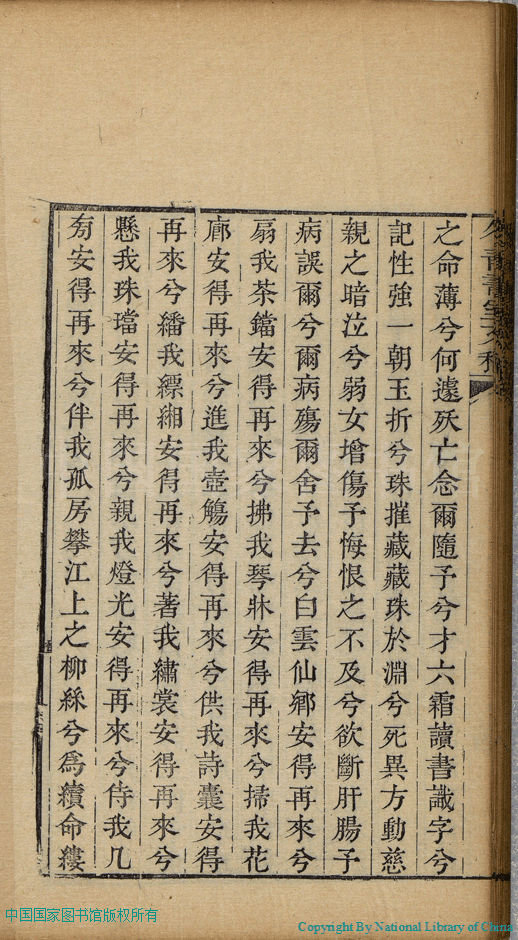 之命薄兮何遽殀亡念爾隨予兮才六霜讀書識字兮
記性強一朝玉折兮珠摧藏藏珠於淵兮死異方動慈
親之暗泣兮弱女增傷予悔恨之不及兮欲斷肝腸予
病誤爾兮爾病殤爾舍予去兮白雲仙鄉安得再來兮
扇我茶鐺安得再來兮拂我琴牀安得再來兮掃我花
廊安得再來兮進我壺觴安得再來兮供我詩囊安得
再來兮繙我縹緗安得再來兮著我繡裳安得再來兮
懸我珠璫安得再來兮親我燈光安得再來兮侍我几
安得再來兮伴我孤房攀江上之柳絲兮爲續命縷
中国国家图书馆版权所有
Copyright By National Library of China